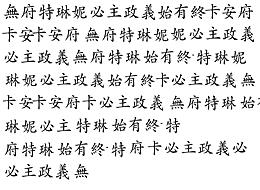 無府特琳妮必主政義始有終卡安府
卡安卡安府 無府特琳妮妮必主政義
必主政義 無府特琳始有終·特琳妮
琳妮必主政義始有終卡必主政義無
卡安卡安府卡必主政義 無府特琳始有
琳妮必主 特琳始有終·特
府特琳始有終·特 府卡必主政義必
必主政義無